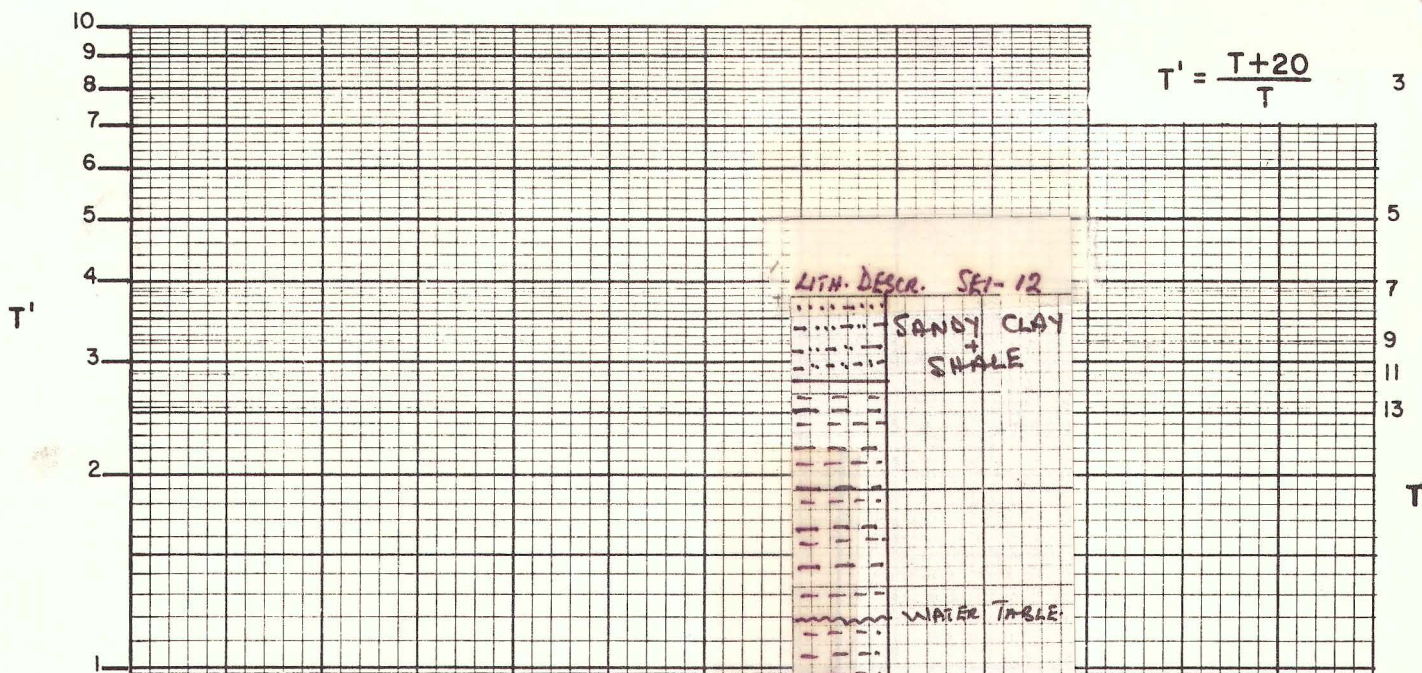 10
9
8
7
6
5
4
3
2
1
T'
T' = T+20
T
3
5
7
9
11
13
T
LITH. DESCR. SE1-12
SANDY CLAY
+
SHALE
WATER TABLE.